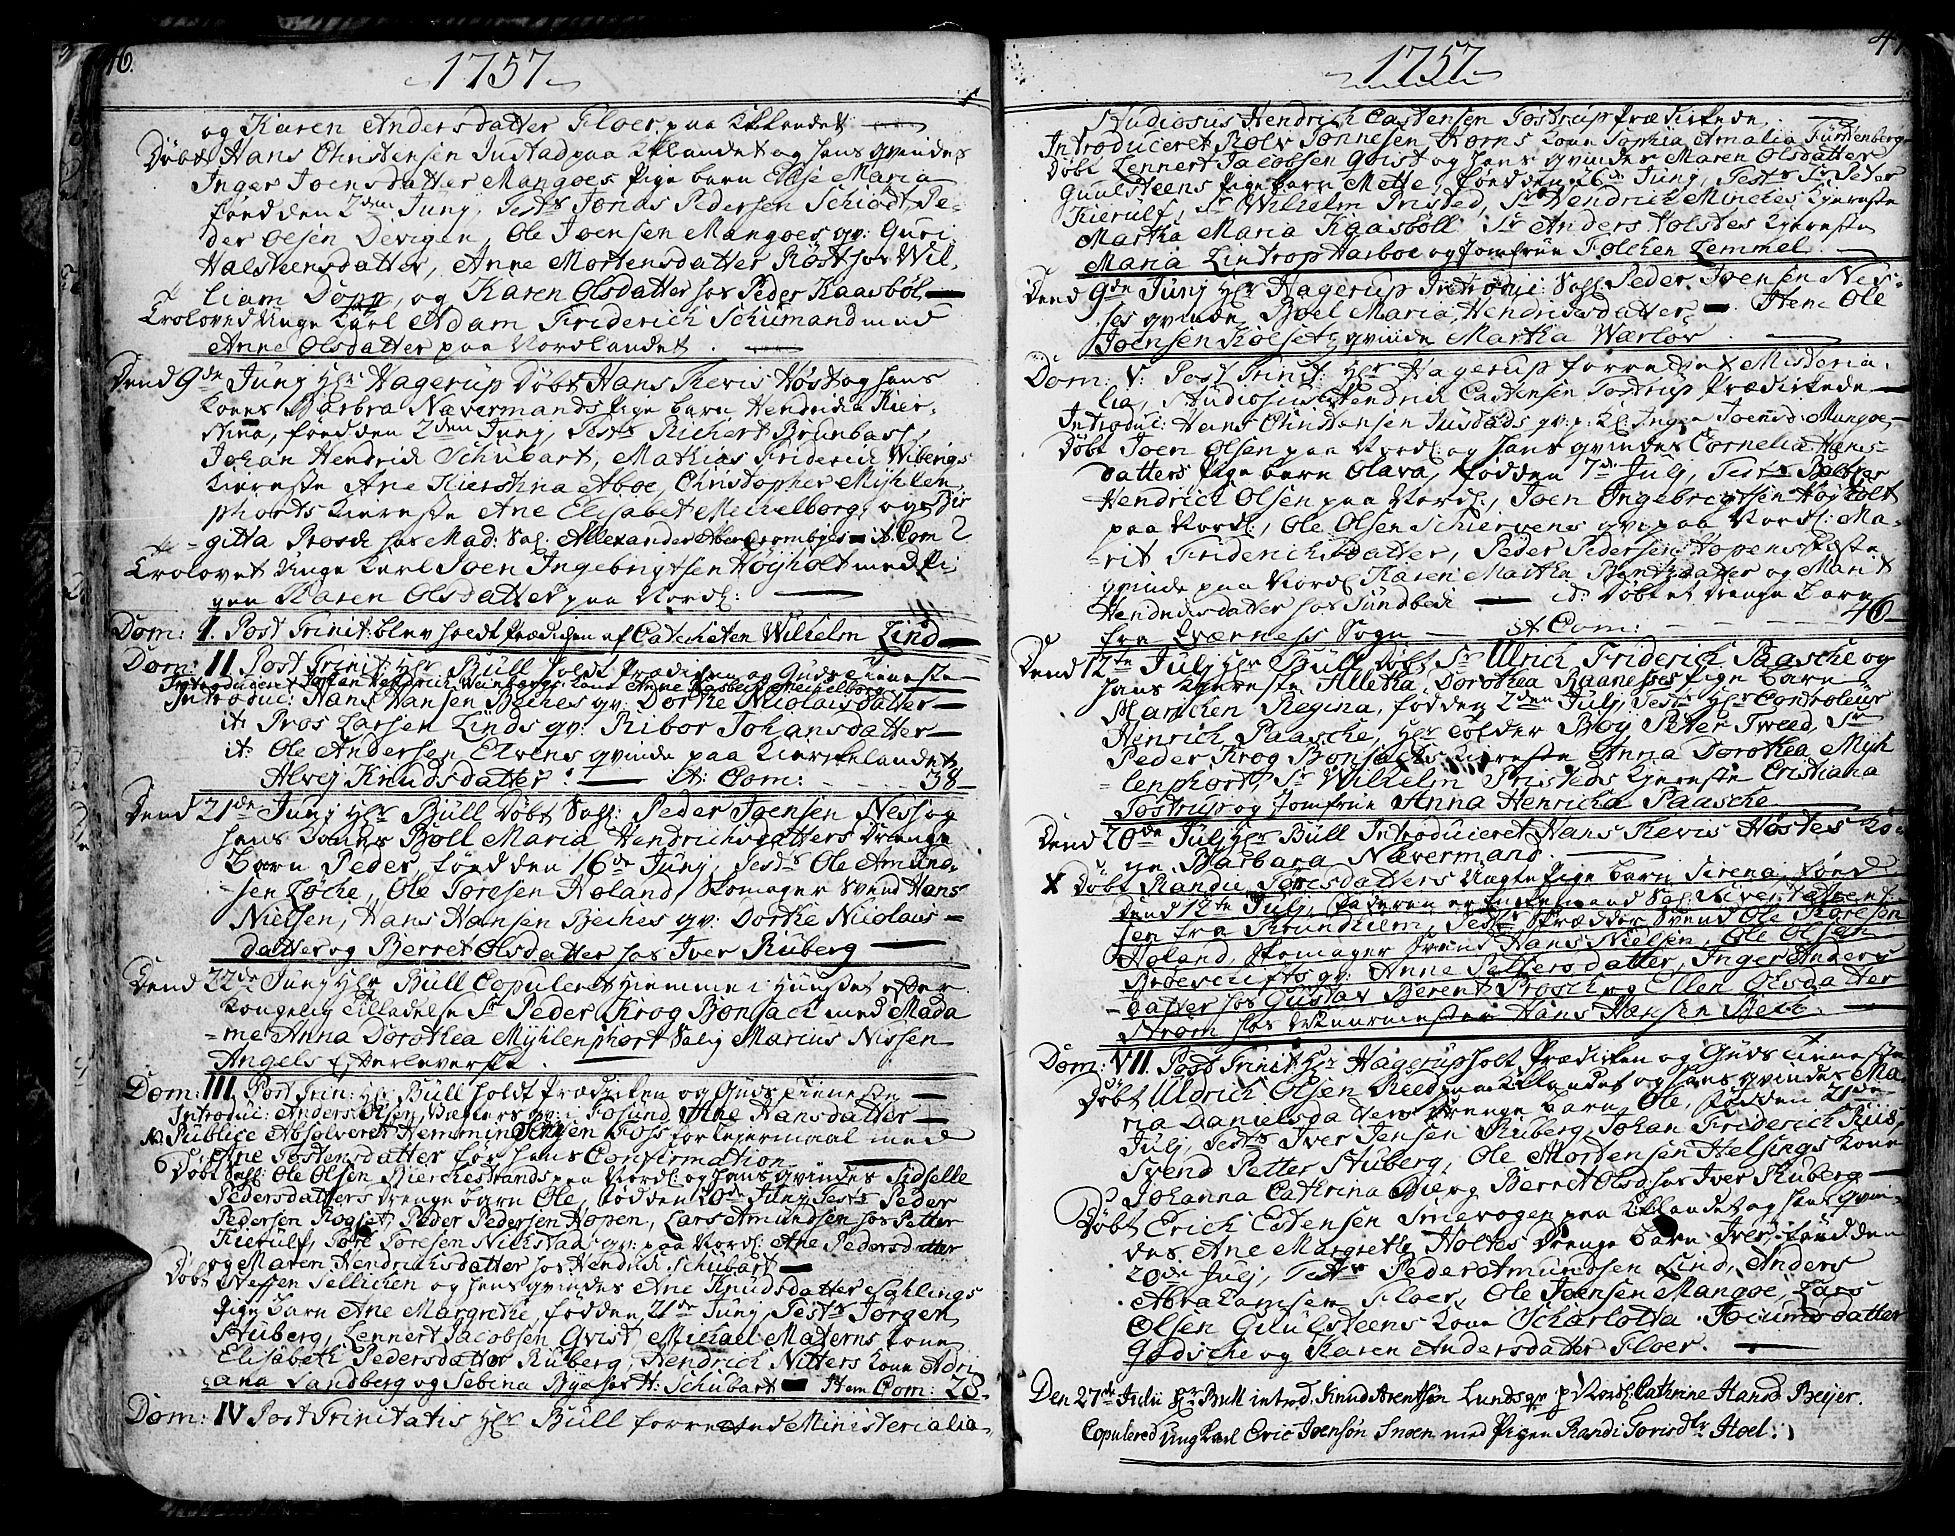 46.
1757
og Karen Andersdatter Floer paa Kklandet
Døbt Hans Christensen Justad paa Kklandet og hans qvindes
Inger Joensdatter Mangoes Pige barn Else Maria
född den 2den Junj, Test: Jonas Pedersen Schiødt, Pe-
der Olsen Devigen, Ole Joensen Mangoes qv: Guri
Halsteensdatter, Anne Mortensdatter Røst hos Wil-
liam Dopp, og Karen Olsdatter hos Peder Kaasbøl
Troloved Unge Karl Adam Friderich Schumand med
Anne Olsdatter paa Nordlandet.
Dend 9de Junj Hr Hagerup Døbt Hans Thevis Høst og hans
kones Barbra Nævermands Pige barn Hendricha Kier-
stina, född den 2den Junj, Test: Richert Brunbass,
Johan Hendrich Schubart, Mathias Friderich Wibergs
kiereste Ane Kierstina Aboe, Christopher Mÿhlen-
phorts kiereste Ane Elisabet Meickelborg, og Bir
gitta Prosch hos Mad: Sal: Allexander Abercrombÿes it. Com 2
Trolovet Unge Karl Joen Ingebrigtsen Høÿholt med Pi
gen Karen Olsdatter paa Nordl:
Dom: I. Post Trinit: blev holdt Prædichen af Catecheten Wilhelm Lind
Dom: II Post Trinit: Hr Bull holdt Prædichen og Guds tieneste
Introduceret Johan Hendrich Weinbergs kone Anne Meichelborg
Introduc: Hans Hansen Beches qv: Dorthe Nicolaisdatter
it: Pros Larsen Linds qv: Ribor Johansdatter
it: Ole Andersen Elvens qvinde paa Kirchelandet
Alvej Knudsdatter: A: Com: 38
Dend 21de Junj Hr Bull Døbt Sal: Peder Joensen Ness og
hans kones Boll Maria Hendrichsdatters Drenge
Barn Peder, född den 16de Junj, Test: Ole Amund-
sen Løche, Ole Toresen Holand, Skomager Svend Hans
Nielsen, Hans Hansen Beches qv: Dorthe Nicolais-
datter og Berret Olsdatter hos Iver Ruberg
Dend 22de Junj Hr Bull Copuleret Hiemme i Huuset efter
kongelig Tilladelse Sr Peder Krog Bonsach med Mada
me Anna Dorothea Mÿhlenphort Salig Marcus Nissen
Angels Efterleverske.
Dom: III Post Trin: Hr Bull holdt Prædichen og Guds tieneste
Introduc: Anders Olsen qv: i Fosund Ane Hansdatter
Publice Absolveret Hemming Foss for Lejermaal med
Ane Tostensdatter for hans Confirmation
Døbt Sal: Ole Olsen Kierchestrands paa Nordl: og hans qvindes Sidselle
Pedersdatters Drenge barn Ole, född den 20de Junj Test: Peder
Pedersen Rogset, Peder Pedersen Hopen, Lars Amundsen hos Petter
Kierulf, Tore Toresen Nichstad qv: paa Nordl: Ane Pedersdatter
og Maren Hendrichsdatter hos Hendrich Schubart
Døbt Steffen Sellichen og hans qvindes Ane Knudsdatter Sahlings
Pige barn Ane Margrethe, född den 21de Junj Test: Jørgen
Stuberg, Lennert Jacobsen Qvist, Michael Materns kone
Elisabeth Pedersdatter Ruberg, Hendrich Nitters kone Adri
ana Landberg og Sebina Bÿe hos H: Schubart Item Com: 28
Dom: IV Post Trinitatis Hr Bull forrettede Ministerialia
47
1757
Studiosus Hendrich Castensen Tostrup Prædichede
Introduceret Rolv Tønnesen Horns kone Sophia Amalia Fürstenberg
Døbt Lennert Jacobsen Qvist og hans qvindes Maren Olsdatter
Guulsteens Pige barn Mette, född den 26de Junj, Test: Sr Peder
Kierulf, Sr Wilhelm Tristed, Sr Hendrich Minches kiereste
Martha Maria Kaasbøll Sr Anders Holstes kiereste
Maria Lintrop Harboe og Jomfrue Folchen Lemmel
Dend 9de Junj Hr Hagerup Introduc: Sal: Peder Joensen Nes-
ses qvinde Boel Maria Hendrichsdatter Item Ole
Joensen Rolset: qvinde Martha Wærlør
Dom: V: Post Trinit: Hr Hagerup forrettet Misteria-
lia, Studiosus Hendrich Castensen Tostrup Prædichede
Introduc: Hans Christensen Justads qv: p: K: Inger Joensd: Mangoe
Døbt Joen Olsen paa Nordl: og hans qvindes Cornelia Hans-
datters Pige barn Olava, född den 7de Julj, Test:
Hendrich Olsen paa Nordl:, Joen Ingebrigtsen Høÿholt
paa Nordl:, Ole Olsen Schiervens qv: paa Nordl: Ma-
rit Friderichsdatter, Peder Pedersen Hopens
qvinde paa Nordl: Karen Martha datter og Marit
Hendrichsdatter hos Sundbech it: Døbt et Drenge barn
fra Qværness Sogn A Com: 46
Dend 12te Julj Hr Bull Døbt Sr Ulrich Friderich Paasche og
hans kiereste Alletha Dorothea Raanesses Pige Barn
Marichen Regina, född den 2den Julj, Test: Hr Controleur
Henrich Paasche, Hr Tolder Boÿ Peter Tweed, Sr
Peder Krog Bonsachs kiereste Anna Dorothea Mÿh
lenphort, Sr Wilhelm Tristeds kiereste Cristiana
Tostrup og Jomfrue Anna Henricha Paasche
Dend 20de Julj Hr Bull Introduceret Hans Thevis Høstes Ko
ne Barbara Nævermand.
X Døbt Randi Toresdatters Uægte Pige barn Sirena, född
Dend 12te Julj,
sen fra Trondhiem, Test: Skrædder Svend Ole Toresen
Holand, Skomager Svend Hans Nielsen, Ole Olsen
qv: Anne Pettersdatter, Inger Anders
datter hos Gustav Berent Prosch og Ellen Olsdatter
Strøm hos Hans Hansen Bech.
Dom: VII Post Trinit: Hr Hagerup holt Prædichen og Guds tieneste
Døbt Uldrich Olsen Reed paa Kklandet og hans qvindes Ma
ria Danielsdatters Drenge barn Ole, född den 21de
Julj, Test: Iver Jensen Ruberg, Johan Friderich Ruus
Svend Petter Stuberg, Ole Mortensen Helsings kone
Johanna Cathrina Bie og Berret Olsd: hos Iver Ruberg
Døbt Erich Estensen Smevogen paa Kklandet og hans qvin-
des Ane Margrethe Holtes Drenge barn Iver, född den
20de Julj, Test: Peder Amundsen Lind, Anders
Abrahamsen Floer, Ole Joensen Mangoe, Lars
Olsen Guulsteens kone Scharlotta Jocumsdatter
Godsche og Karen Andersdatter Floer.
Den 27de Julii Hr Bull introd: Knud Arentsøn Lunds qv: p: Nordl: Cathrine Hansd: Beijer.
Copulered Ung Karl Eric Joensøn Inoen med Pigen Randi Torisdr Hoel.